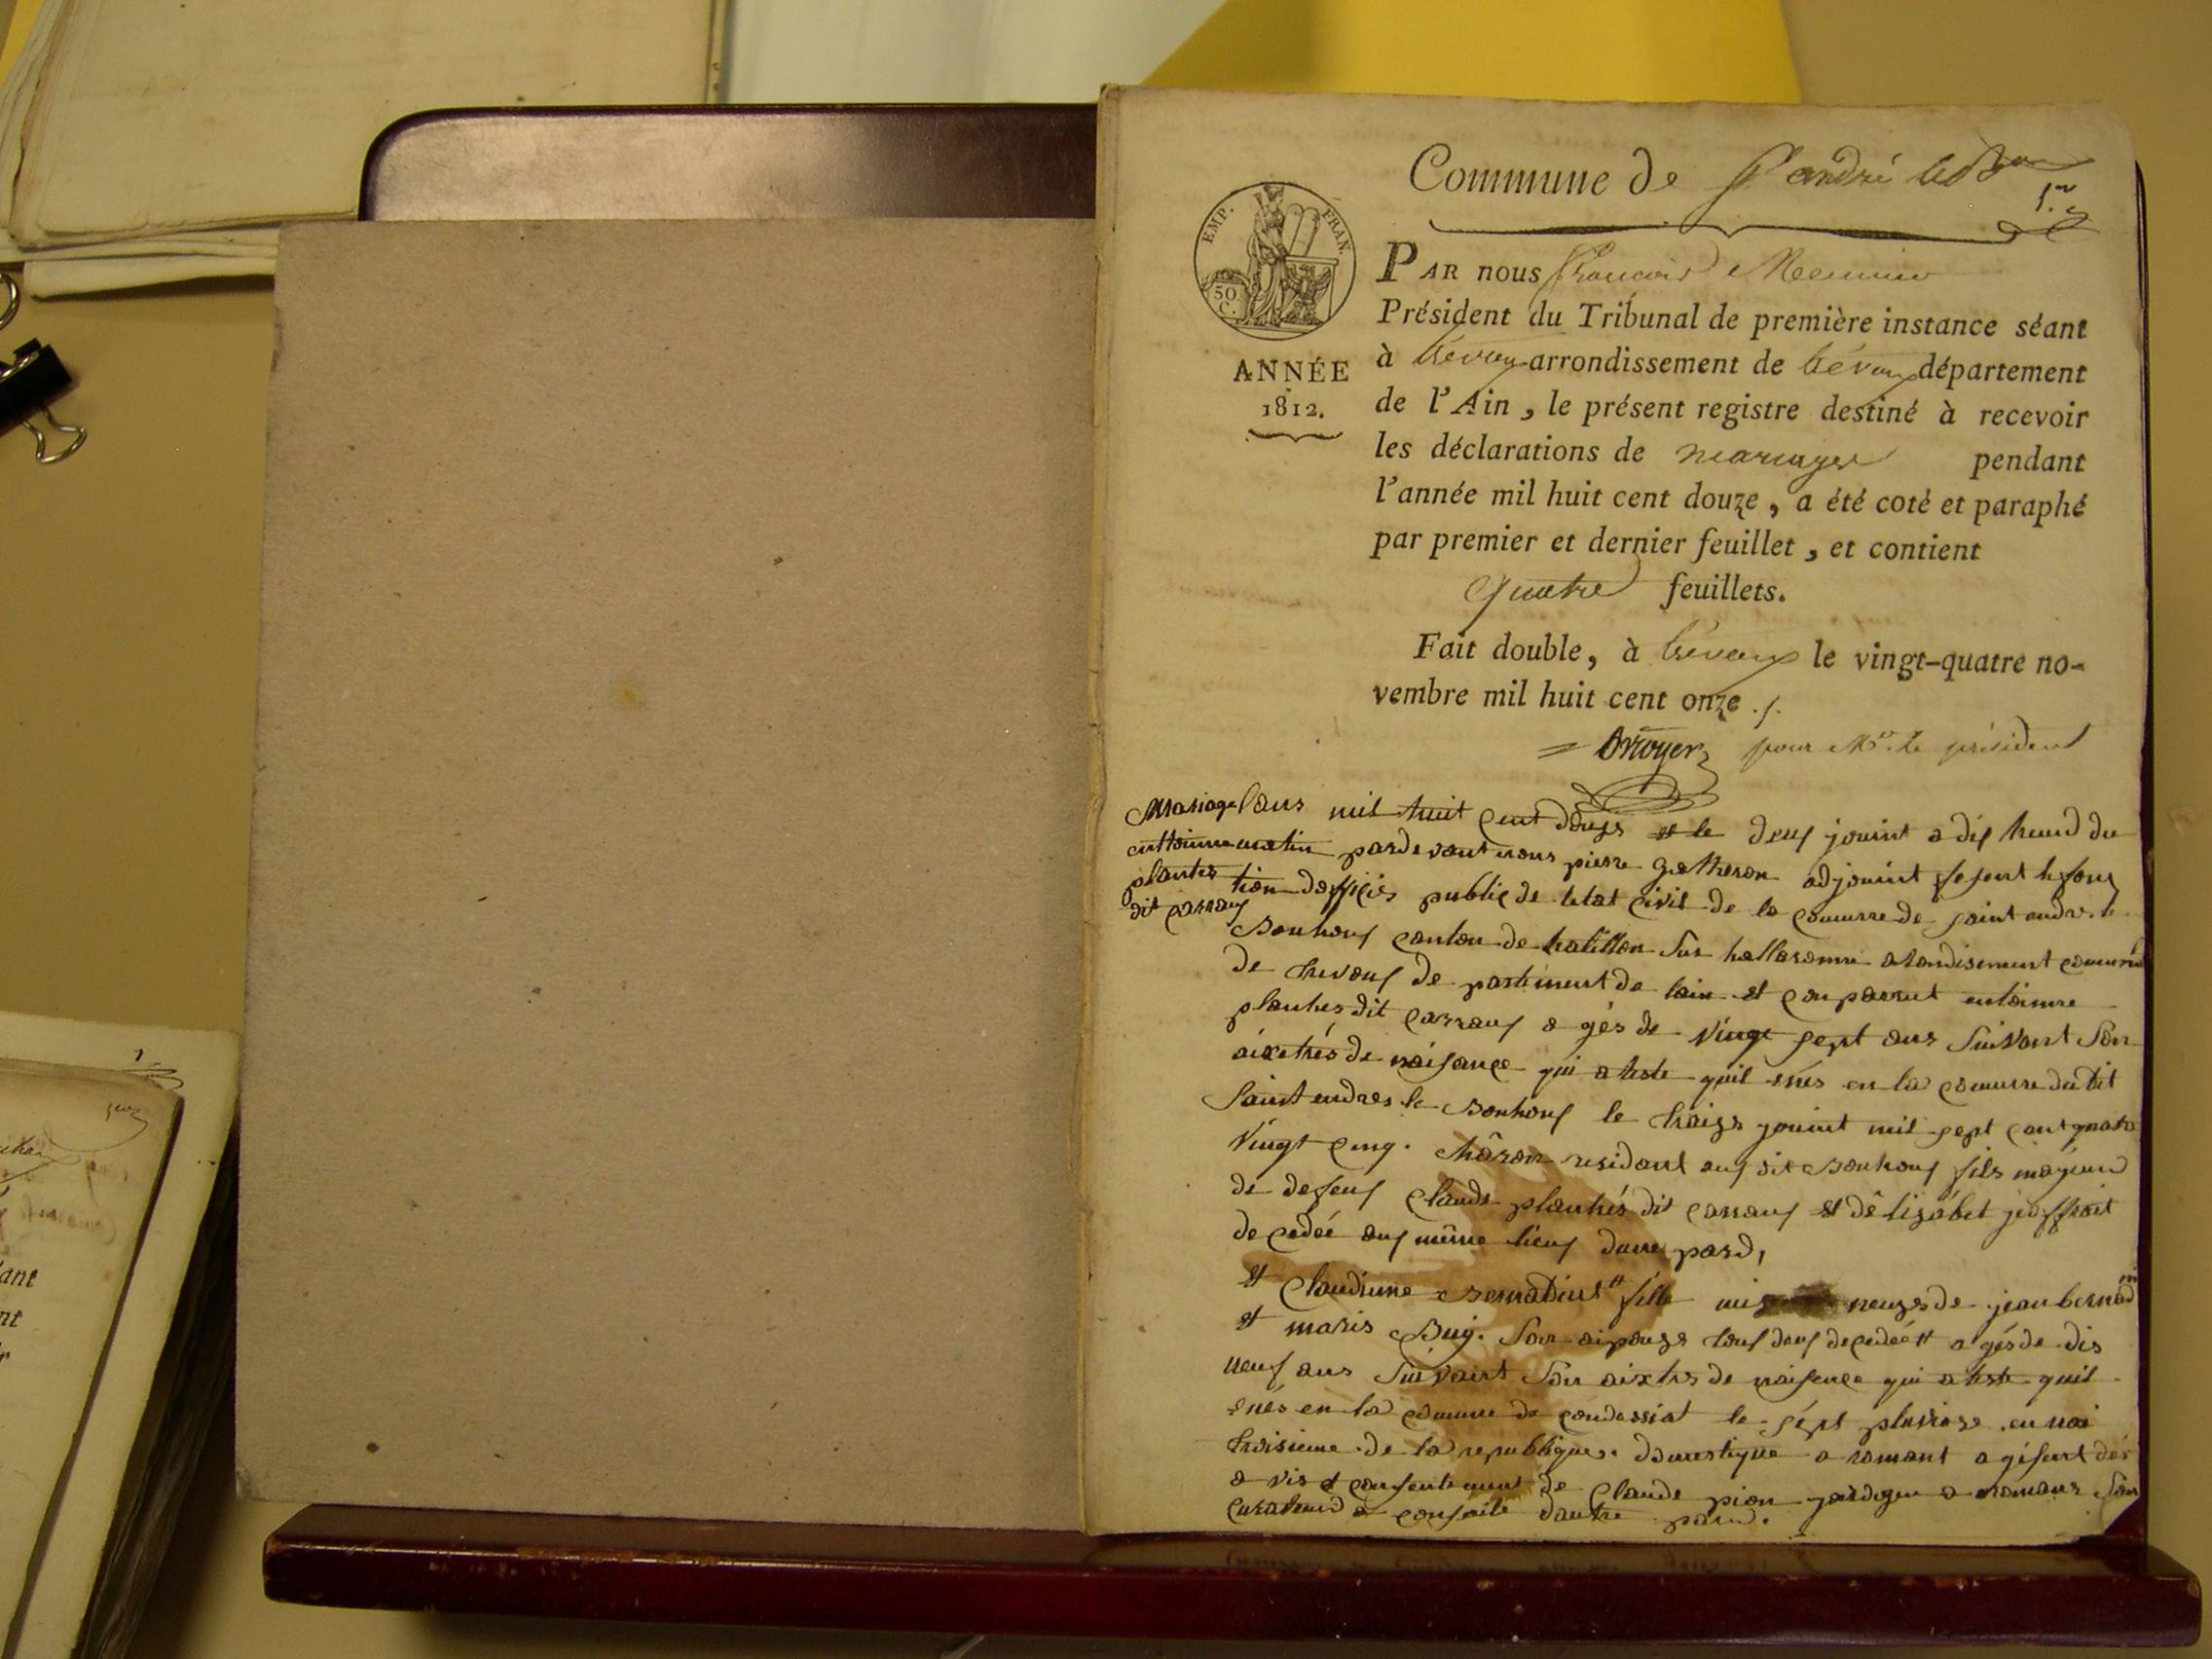 Commune de St andré le Bou
1.er
EMP. FRAN.
50 C.
ANNÉE
1812.
PAR nous François Meunier
Président du Tribunal de première instance séant
à trévoux arrondissement de trévoux département
de l'Ain, le présent registre destiné à recevoir
les déclarations de mariages pendant
l'année mil huit cent douze, a été coté et paraphé
par premier et dernier feuillet, et contient
quatre feuillets.
Fait double, à trévoux le vingt-quatre no-
vembre mil huit cent onze ./.
pour Mr. le président
Mariage
anttoinne
plantes
dit carrauf
lans mil huit cent douzs et le deuf jouint a dif heurd du
matin pardevant nous pierre gatheron adjouint fefent lesfonq
tion dofficier publiq de letat civil de la coumune de saint andre le
Bouhouf canton de hatillon sur hallaronne arondisement coumunal
de trevouf de partement de lain et comparut entoinne
plantes dit carrauf a gés de vingt sept ans suivant son
aixetrés de naisance qui ateste quil enés en la coumune dudit
saint andres le Bouhouf le traizs jouint mil sept cant quatre
vingt cinq. châron residant auf dit Bouhouf fils mageurd
de defeuf claude plantés dit carrauf et dé lizabet joffroit
decedéé auf même lieuf dune pard,
et claudinne Bernadint fille mi neuzs de jean bernadint
et maris Buy. son aipouzs touf deuf decedéé agés de dis
neuf ans suivant son aixtrs de naisance qui ateste quil
enés en la coumune de coudessiat le sépt pluvioze en nai
troisieme de la republique. doumestique a romant agifsent dés
a vis et consentement de claude pion jardigne a romans son
curateurd a consaile dautre pard.
ant
nt